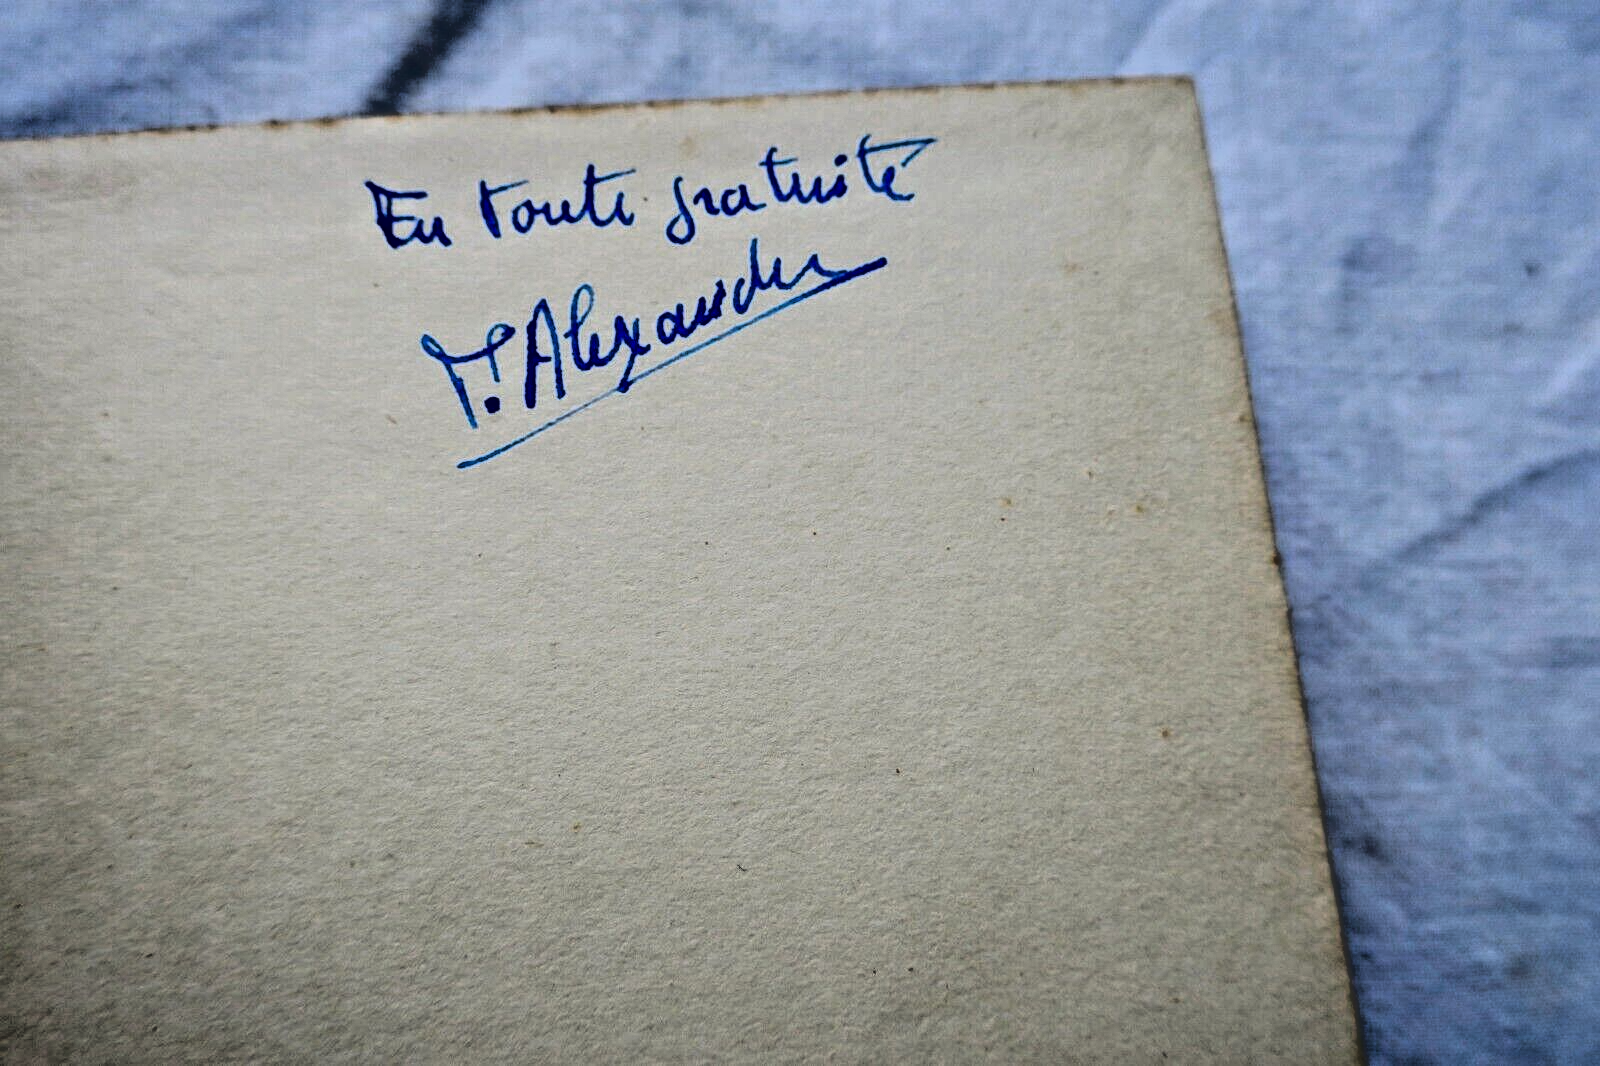 En toute gratuité
M. Alexandre